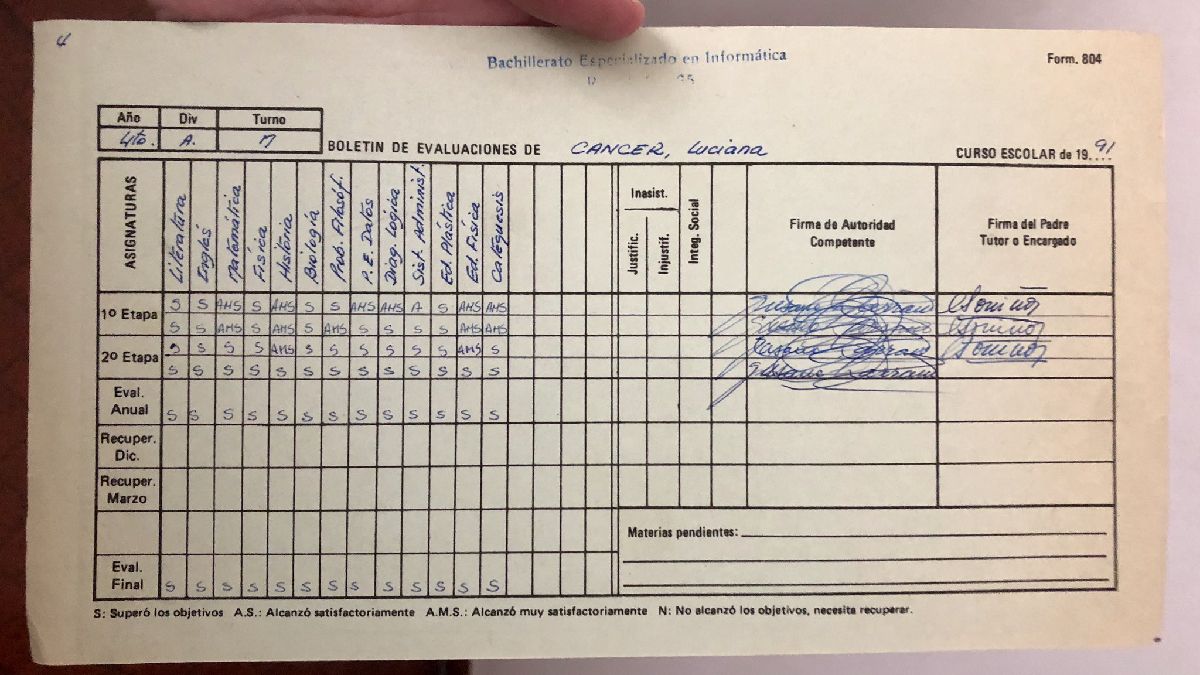 4
Bachillerato Especializado en Informática
Form. 804
Año Div Turno
4to. A. M
BOLETIN DE EVALUACIONES DE CANCER, Luciana CURSO ESCOLAR de 1991
ASIGNATURAS Literatura Inglés Matemática Física Historia Biología Prob. Filosóf. P.E. Datos Diag. Logica Sist. Administ. Ed. Plástica Ed. Física Catequesis Inasist. Justific. Injustif. Integ. Social Firma de Autoridad Competente Firma del Padre Tutor o Encargado
1º Etapa S S AMS S AMS S S AMS AMS A S AMS AMS
S S AMS S AMS S AMS S S S S AMS AMS
2º Etapa S S S S AMS S S S S S S AMS S
S S S S S S S S S S S S S
Eval. Anual S S S S S S S S S S S S S
Recuper. Dic.
Recuper. Marzo
Materias pendientes:
Eval. Final S S S S S S S S S S S S S
S: Superó los objetivos A.S.: Alcanzó satisfactoriamente A.M.S.: Alcanzó muy satisfactoriamente N: No alcanzó los objetivos, necesita recuperar.